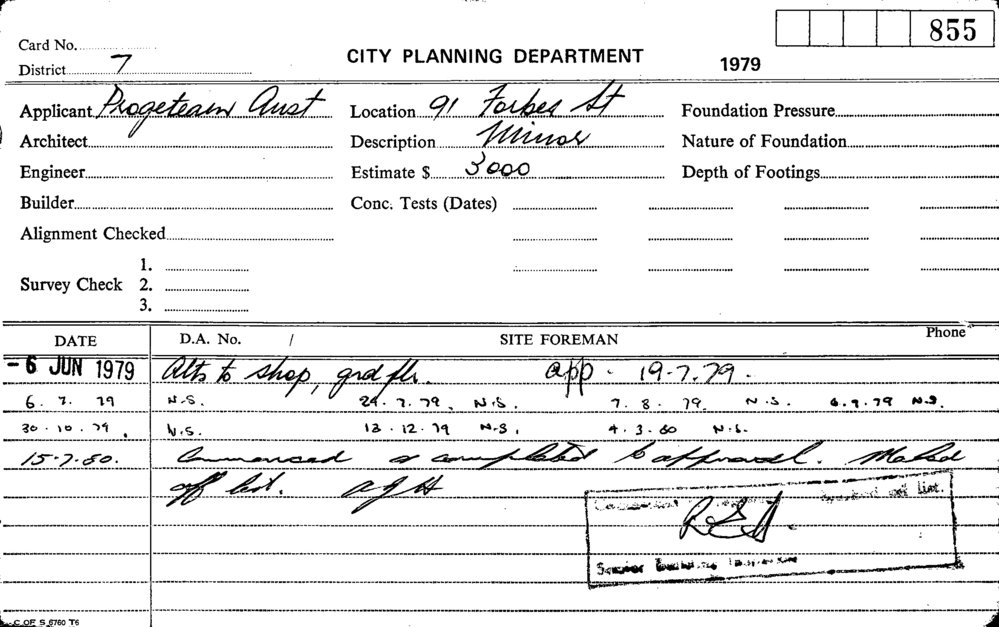 855
Card No.
CITY PLANNING DEPARTMENT
District 7
1979
Applicant Progeteam Aust Location 91 Forbes St Foundation Pressure
Architect Description Minor Nature of Foundation
Engineer Estimate $ 3000 Depth of Footings
Builder Conc. Tests (Dates)
Alignment Checked
1.
Survey Check 2.
3.
DATE D.A. No. / SITE FOREMAN Phone
- 6 JUN 1979 Alts to shop, grd flr. app. 19-7.79.
6. 7. 79 N.S. 24. 7. 79. N.S. 7. 8. 79. N.S. 6.9.79 N.S.
30.10.79. N.S. 12.12.79 N.S. 4.3.80 N.S.
15-7-80. Commenced & completed to approval. Marked
off list. AGH
Marked off list.
Senior Building Inspector
C OF S 6760 T6